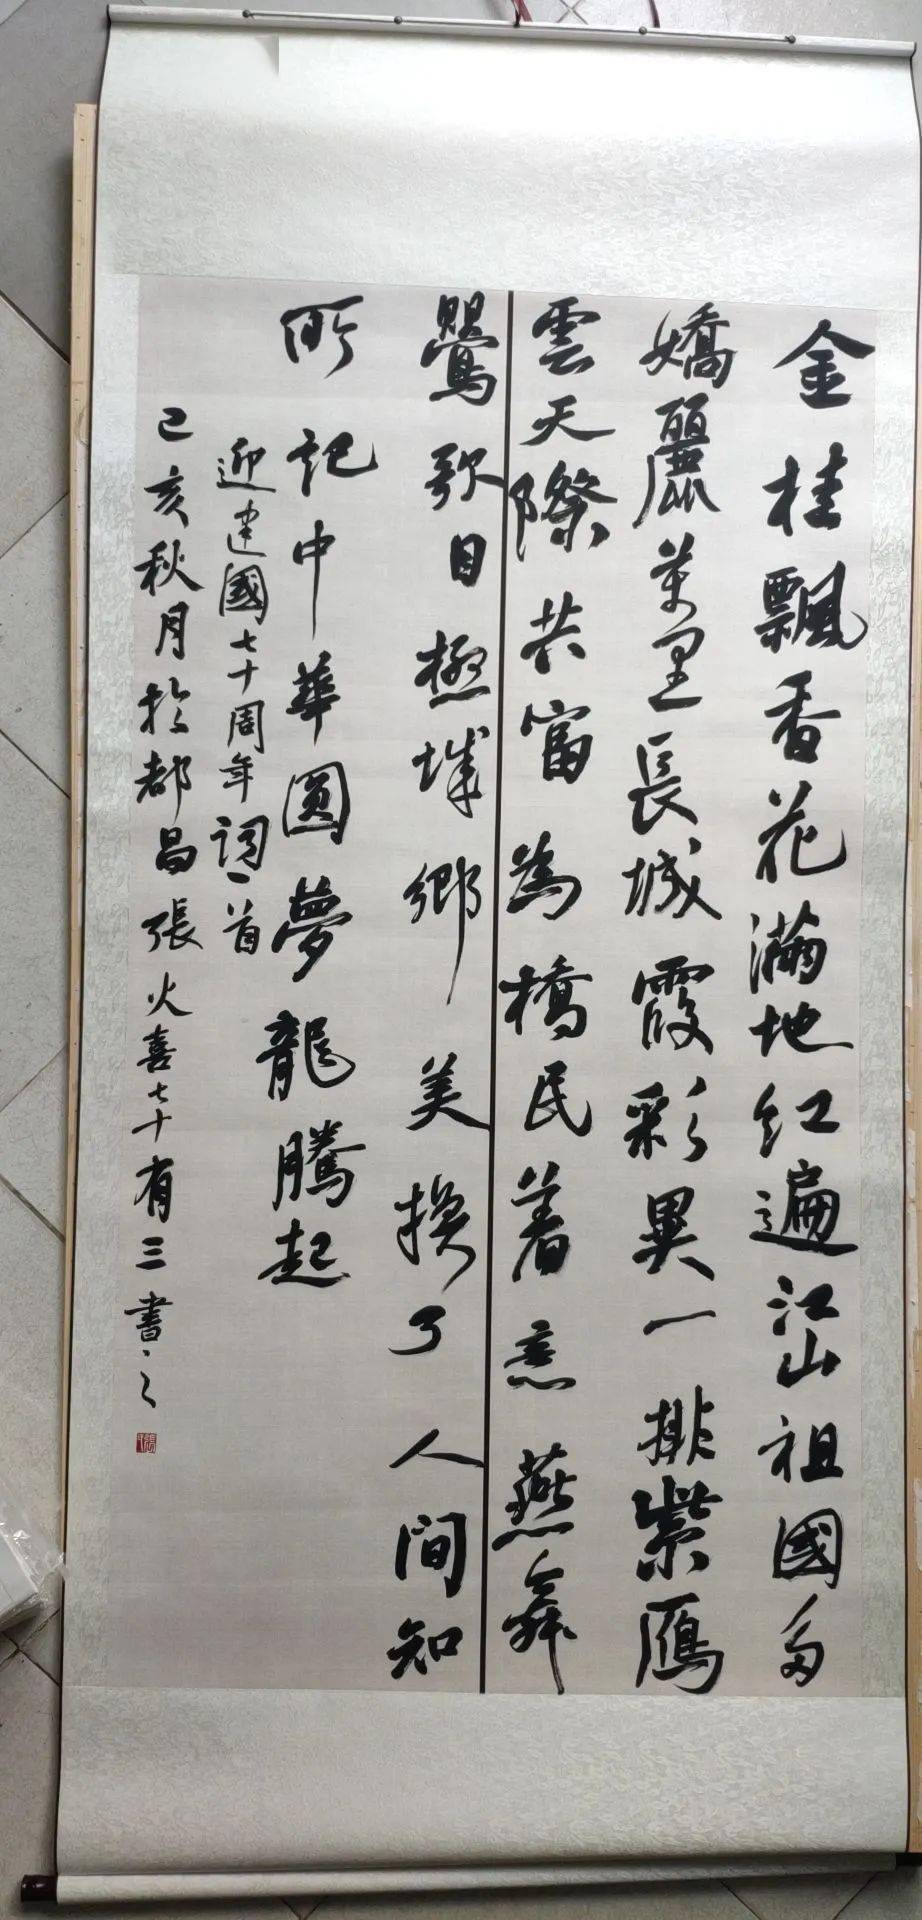 金桂飄香花滿地红遍江山祖國多
嬌麗万里長城霞彩異一排紫鴈
雲天際共富為橋民着意燕舞
鶯歌目極城鄉美换了人间知
所記中華圓夢龍騰起
迎建國七十周年词一首
己亥秋月於都昌張火喜七十有三書之